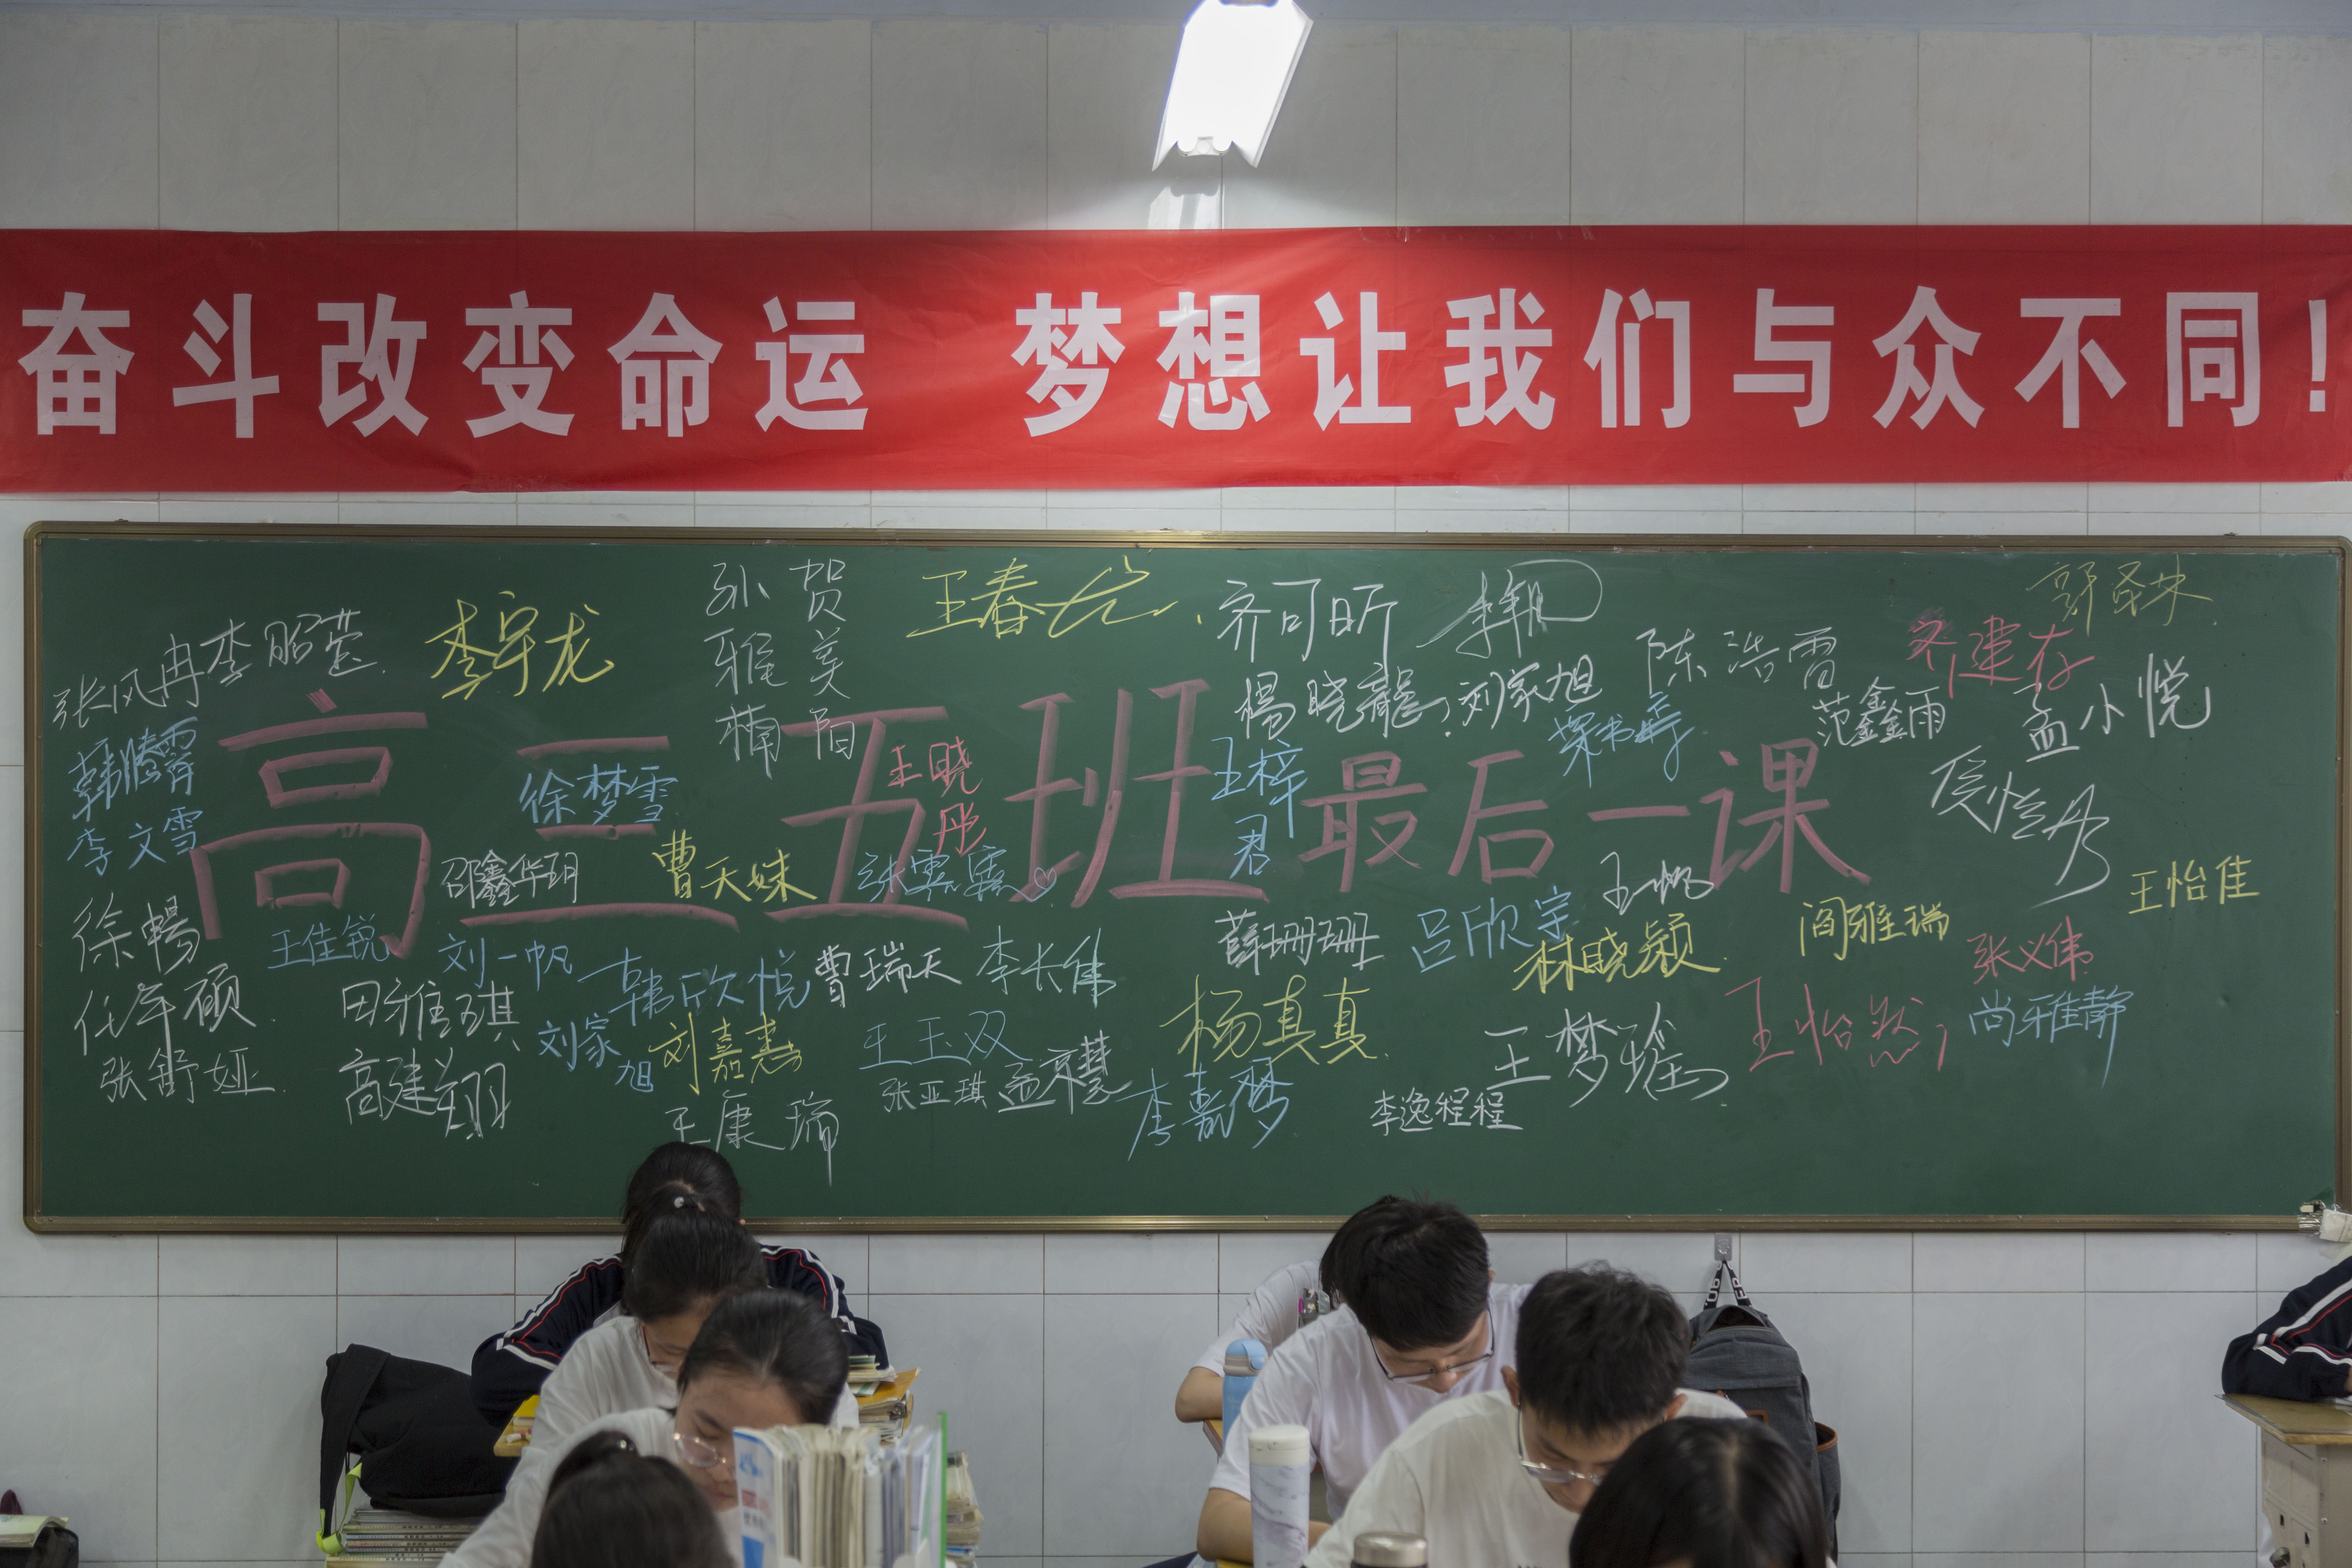 奋斗改变命运 梦想让我们与众不同!
高三五班最后一课
张风冉
李昭莹
李宇龙
孙雅楠
贺美阳
王春
齐可昕
杨晓龍
刘家旭
陈浩雷
齐建存
范鑫雨
孟小悦
韩腾霄
李文雪
徐梦雪
王晓彤
王梓君
邵鑫华玥
曹天妹
张雯
王怡佳
徐暢
王佳锐
刘一帆
韩欣悦
曹瑞天
李长伟
薛珊珊
吕欣宇
王帆
林晓颖
阎雅瑞
张义伟
任年硕
田雅琪
刘家旭
刘嘉惠
王玉双
杨真真
王梦瑶
王怡然
尚雅静
张舒娅
高建翔
王康瑞
张亚琪
孟京慧
李嘉梦
李逸程程